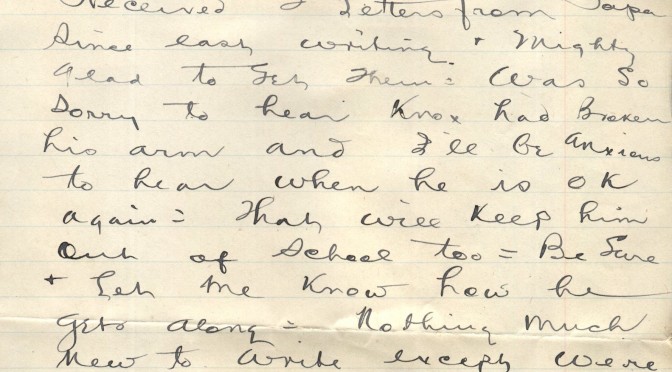 Received 2 Letters from Papa
Since last writing + Mighty
glad to Get Them = Was So
Sorry to hear Knox had Broken
his arm and I'll be anxious
to hear when he is OK
again = That will Keep him
out of School too = Be Sure
+ Let Me Know how he
gets along = Nothing much
New to write except We're